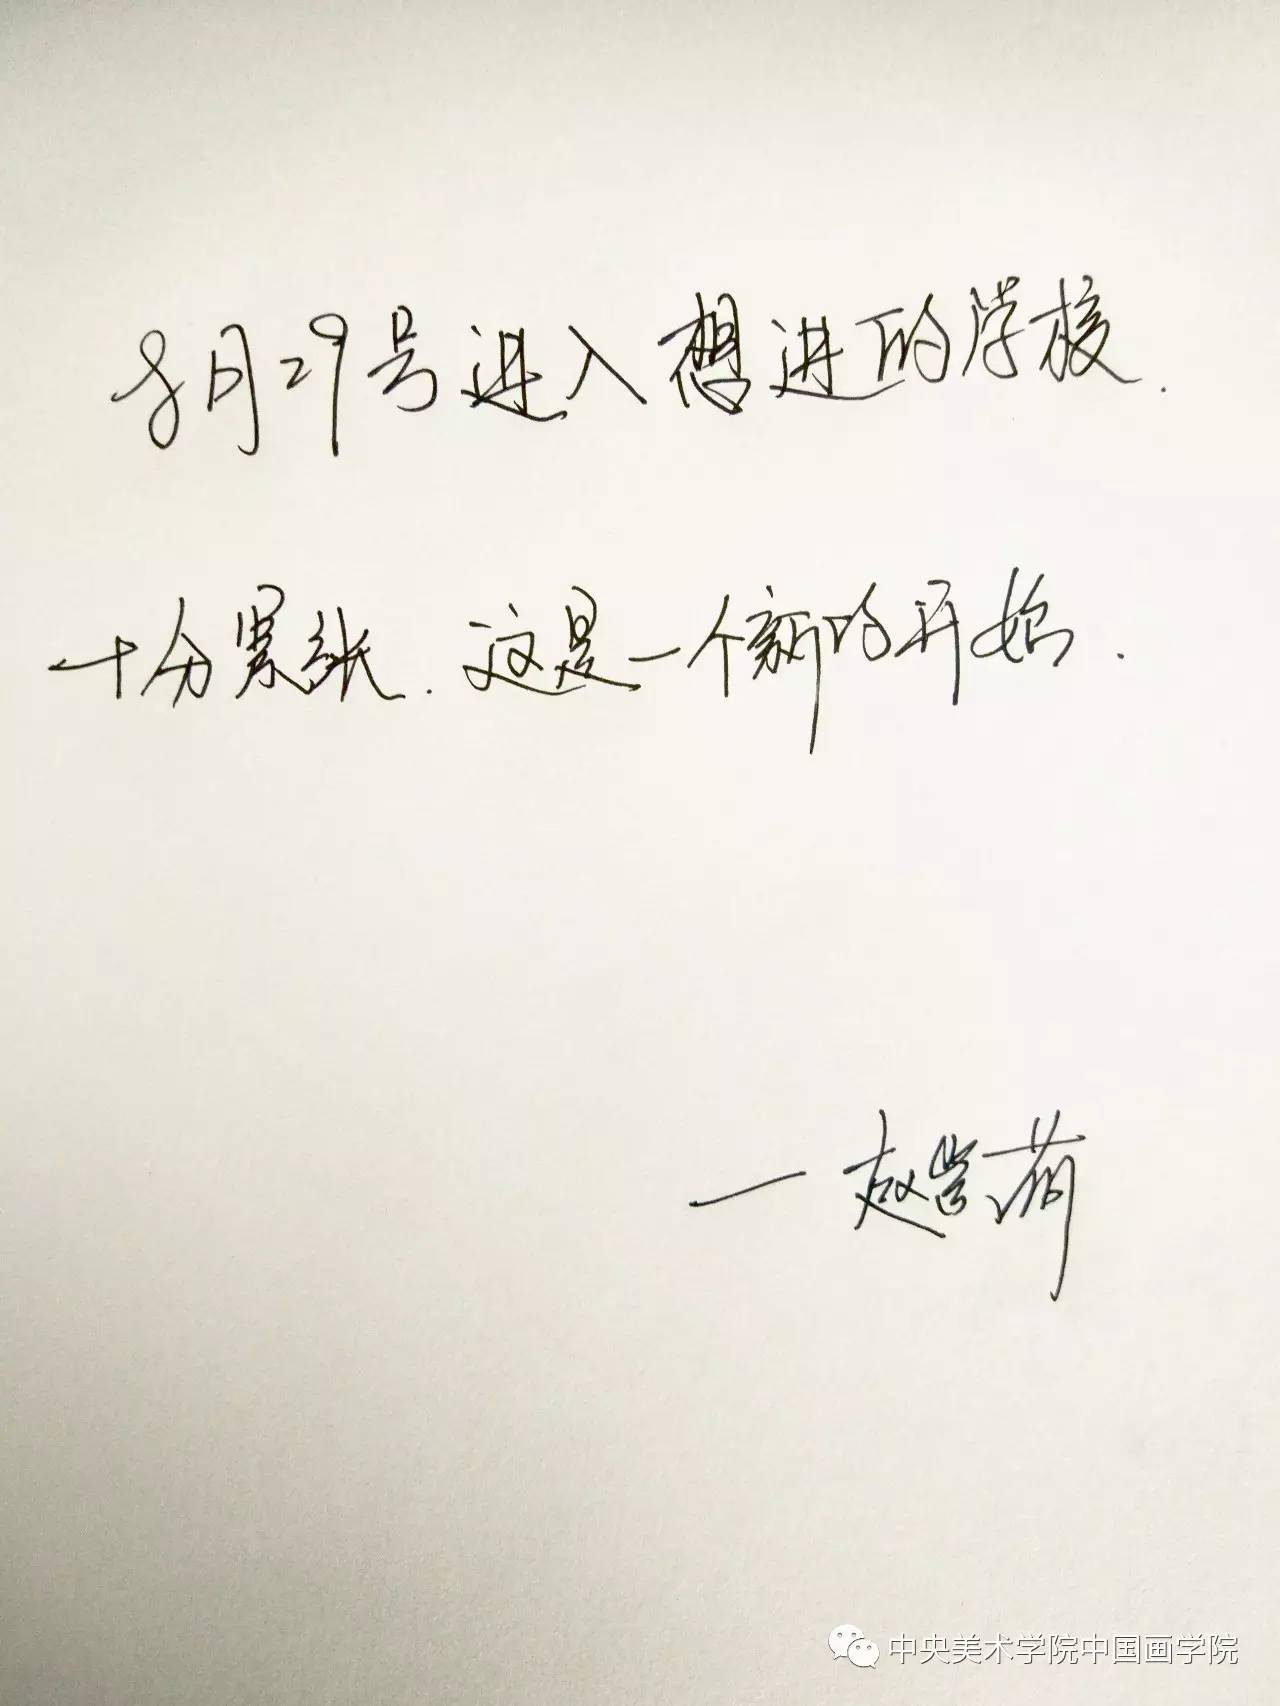 8月29号进入想进的学校.
十分紧张.这是一个新的开始.
—赵
中央美术学院中国画学院